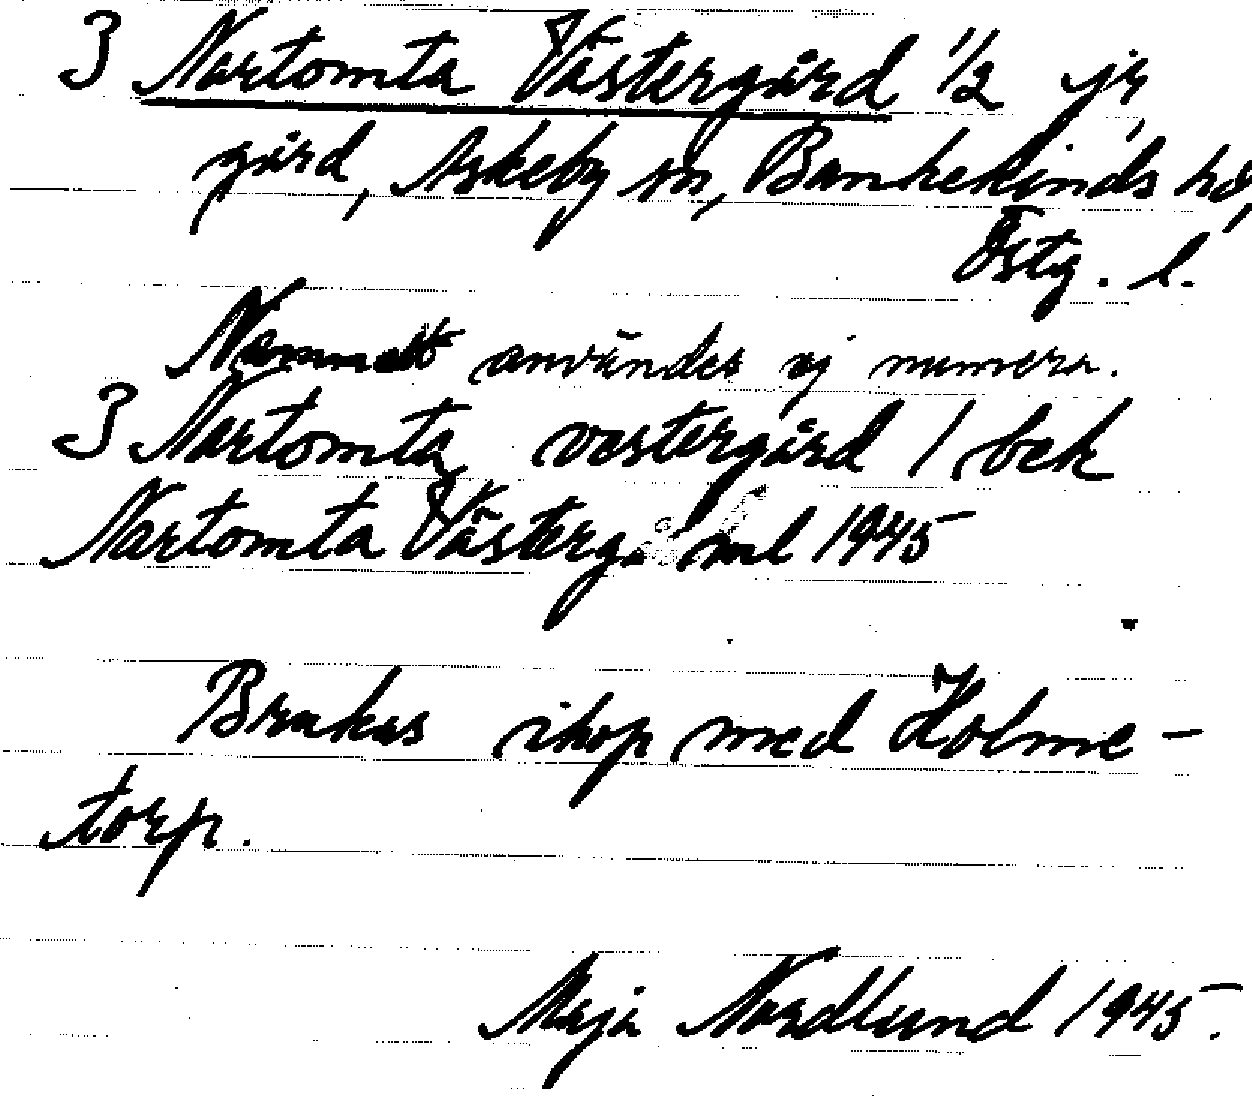 3 Nartomta Västergård 1/2 jr
gård, Askeby sn, Bankekinds hd,
Östg. l.
Namnet användes ej numera.
3 Nartomta vestergård / bek
Nartomta Västerg. ml 1945
Brukas ihop med Holme-
torp.
Maja Nordlund 1945.